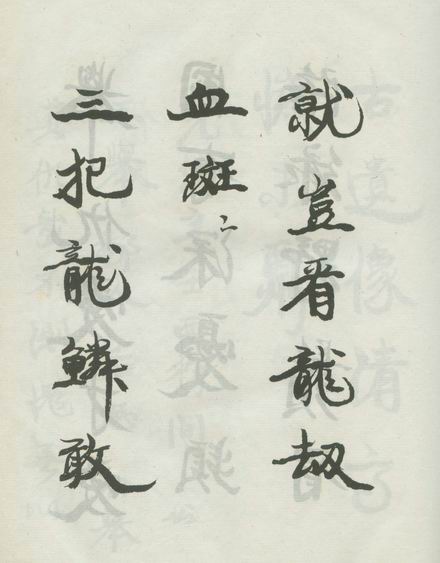 就豈看龍刼
血斑〻
三把龍鱗敢